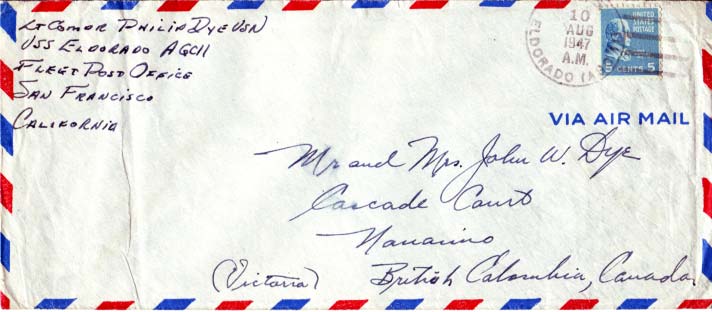 Lt Comdr Philip Dye USN
USS Eldorado AGC11
Fleet Post Office
San Francisco
California
10
AUG
1947
A.M.
ELDORADO (AGC
UNITED STATES
POSTAGE
5 CENTS 5
VIA AIR MAIL
Mr and Mrs. John W. Dye
Cascade Court
Nanaimo
(Victoria) British Columbia, Canada